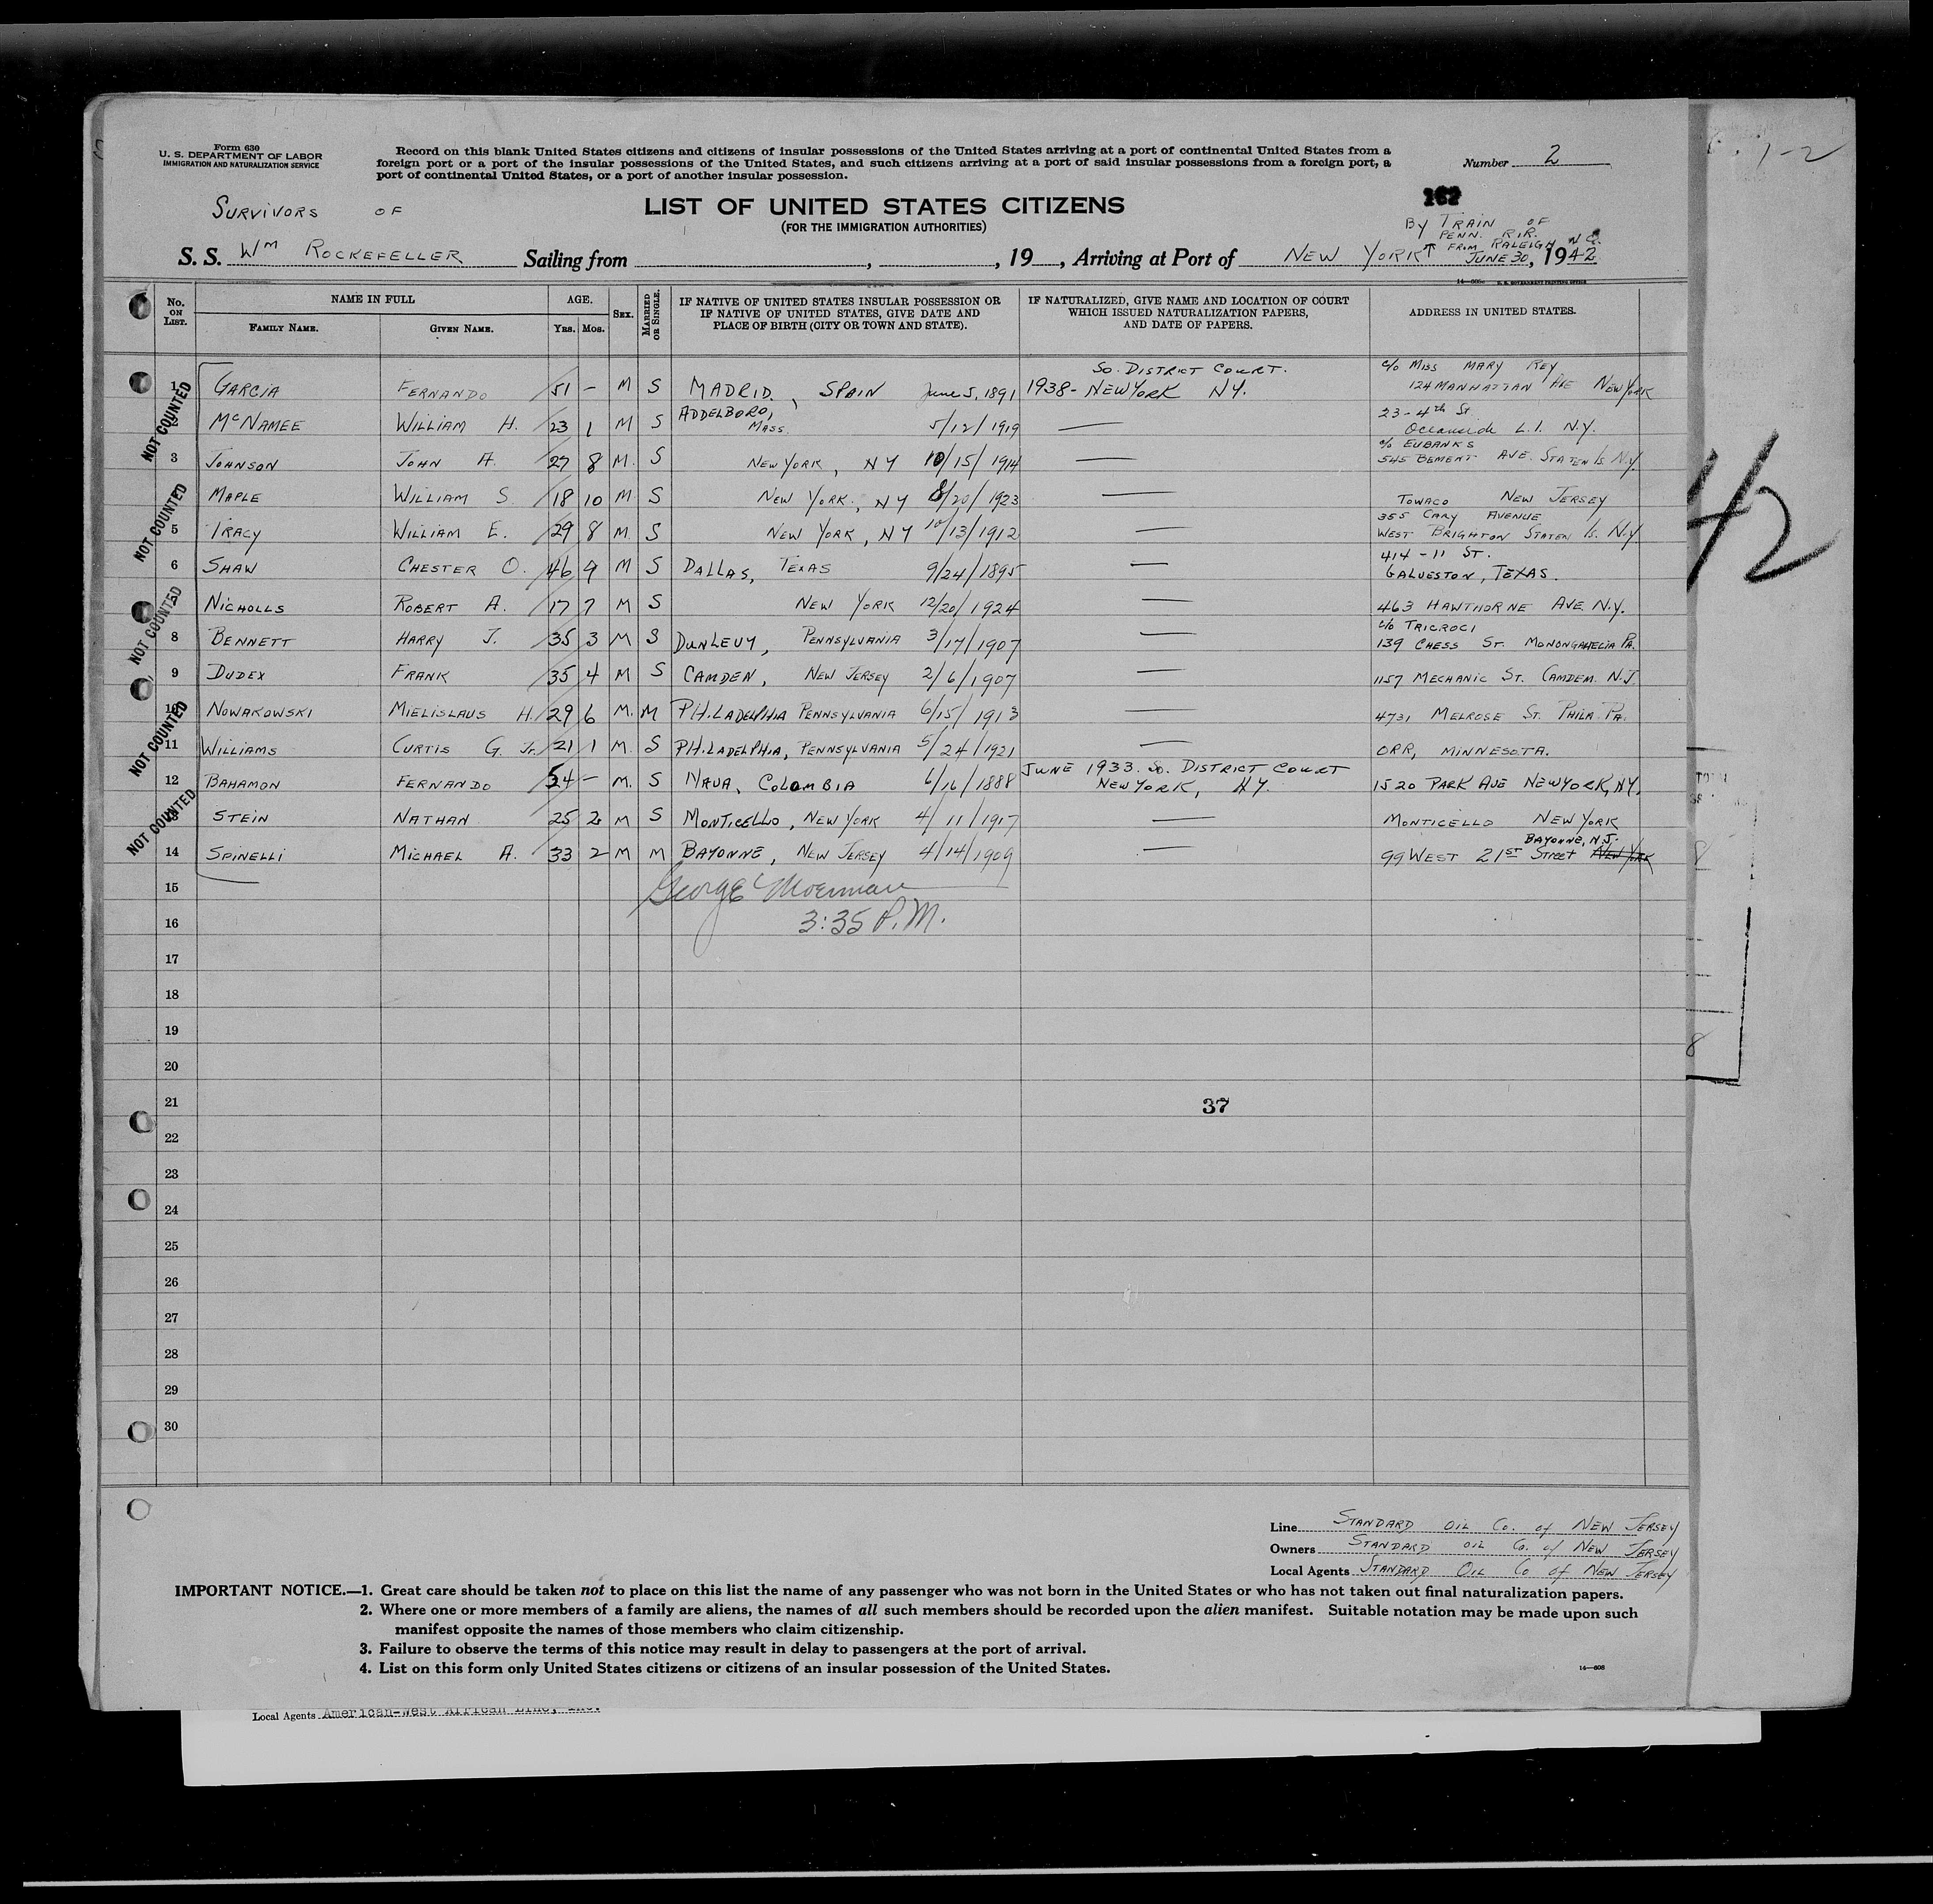 Form 630
U. S. DEPARTMENT OF LABOR
IMMIGRATION AND NATURALIZATION SERVICE
Record on this blank United States citizens and citizens of insular possessions of the United States arriving at a port of continental United States from a
foreign port or a port of the insular possessions of the United States, and such citizens arriving at a port of said insular possessions from a foreign port, a
port of continental United States, or a port of another insular possession.
Number 2
1-2
162
SURVIVORS OF
LIST OF UNITED STATES CITIZENS
(FOR THE IMMIGRATION AUTHORITIES)
BY TRAIN OF
PENN. R.R.
FROM RALEIGH N.C.
S. S. Wm ROCKEFELLER Sailing from , , 19 , Arriving at Port of NEW YORK JUNE 30, 1942
No. ON LIST.
NAME IN FULL
FAMILY NAME. GIVEN NAME.
AGE.
YRS. MOS.
SEX.
MARRIED OR SINGLE.
IF NATIVE OF UNITED STATES INSULAR POSSESSION OR
IF NATIVE OF UNITED STATES, GIVE DATE AND
PLACE OF BIRTH (CITY OR TOWN AND STATE).
IF NATURALIZED, GIVE NAME AND LOCATION OF COURT
WHICH ISSUED NATURALIZATION PAPERS,
AND DATE OF PAPERS.
ADDRESS IN UNITED STATES.
So. DISTRICT COURT. c/o MISS MARY REY
1 GARCIA FERNANDO 51 – M S MADRID, SPAIN June 5, 1891 1938- NEW YORK NY. 124 MANHATTAN AVE NEW YORK
ADDELBORO, 23 - 4th St
McNAMEE WILLIAM H. 23 1 M S MASS. 5/12/1919 — Oceanside L.I. N.Y.
c/o EUBANKS
3 JOHNSON JOHN A. 27 8 M. S NEW YORK, NY 10/15/1914 — 545 BEMENT AVE. STATEN Is. N.Y.
MAPLE WILLIAM S. 18 10 M S NEW YORK, NY 8/20/1923 — TOWACO NEW JERSEY
355 CARY AVENUE
5 TRACY WILLIAM E. 29 8 M. S NEW YORK, NY 10/13/1912 — WEST BRIGHTON STATEN Is. N.Y.
414 - 11 ST.
6 SHAW CHESTER O. 46 9 M S DALLAS, TEXAS 9/24/1895 — GALVESTON, TEXAS.
NICHOLLS ROBERT A. 17 7 M S NEW YORK 12/20/1924 — 463 HAWTHORNE AVE. N.Y.
c/o TRICROCI
8 BENNETT HARRY J. 35 3 M S DUNLEVY, PENNSYLVANIA 3/17/1907 — 139 CHESS ST. MONONGAHELIA PA.
9 DUDEX FRANK 35 4 M S CAMDEN, NEW JERSEY 2/6/1907 — 1157 MECHANIC ST. CAMDEM. N.J.
10 NOWAKOWSKI MIELISLAUS H. 29 6 M. M PHILADELPHIA PENNSYLVANIA 6/15/1913 — 4731 MELROSE ST. PHILA. PA.
11 WILLIAMS CURTIS G. Jr. 21 1 M. S PHILADELPHIA, PENNSYLVANIA 5/24/1921 — ORR, MINNESOTA.
JUNE 1933. So. DISTRICT COURT
12 BAHAMON FERNANDO 54 – M. S COLOMBIA 6/16/1888 NEW YORK, NY. 1520 PARK AVE NEW YORK, NY.
STEIN NATHAN 25 2 M S MONTICELLO, NEW YORK 4/11/1917 — MONTICELLO NEW YORK
BAYONNE, N.J.
14 SPINELLI MICHAEL A. 33 2 M M BAYONNE, NEW JERSEY 4/14/1909 — 99 WEST 21ST STREET NEW YORK
NOT COUNTED
NOT COUNTED
NOT COUNTED
NOT COUNTED
NOT COUNTED
42
15
George Moerman
16
3:35 P.M.
17
18
19
20
21
37
22
23
24
25
26
27
28
29
30
Line STANDARD OIL Co. of NEW JERSEY
Owners STANDARD OIL Co. of NEW JERSEY
Local Agents STANDARD OIL Co of NEW JERSEY
IMPORTANT NOTICE.—1. Great care should be taken not to place on this list the name of any passenger who was not born in the United States or who has not taken out final naturalization papers.
2. Where one or more members of a family are aliens, the names of all such members should be recorded upon the alien manifest. Suitable notation may be made upon such
manifest opposite the names of those members who claim citizenship.
3. Failure to observe the terms of this notice may result in delay to passengers at the port of arrival.
4. List on this form only United States citizens or citizens of an insular possession of the United States.
14—608
Local Agents American-West African Line, Inc.